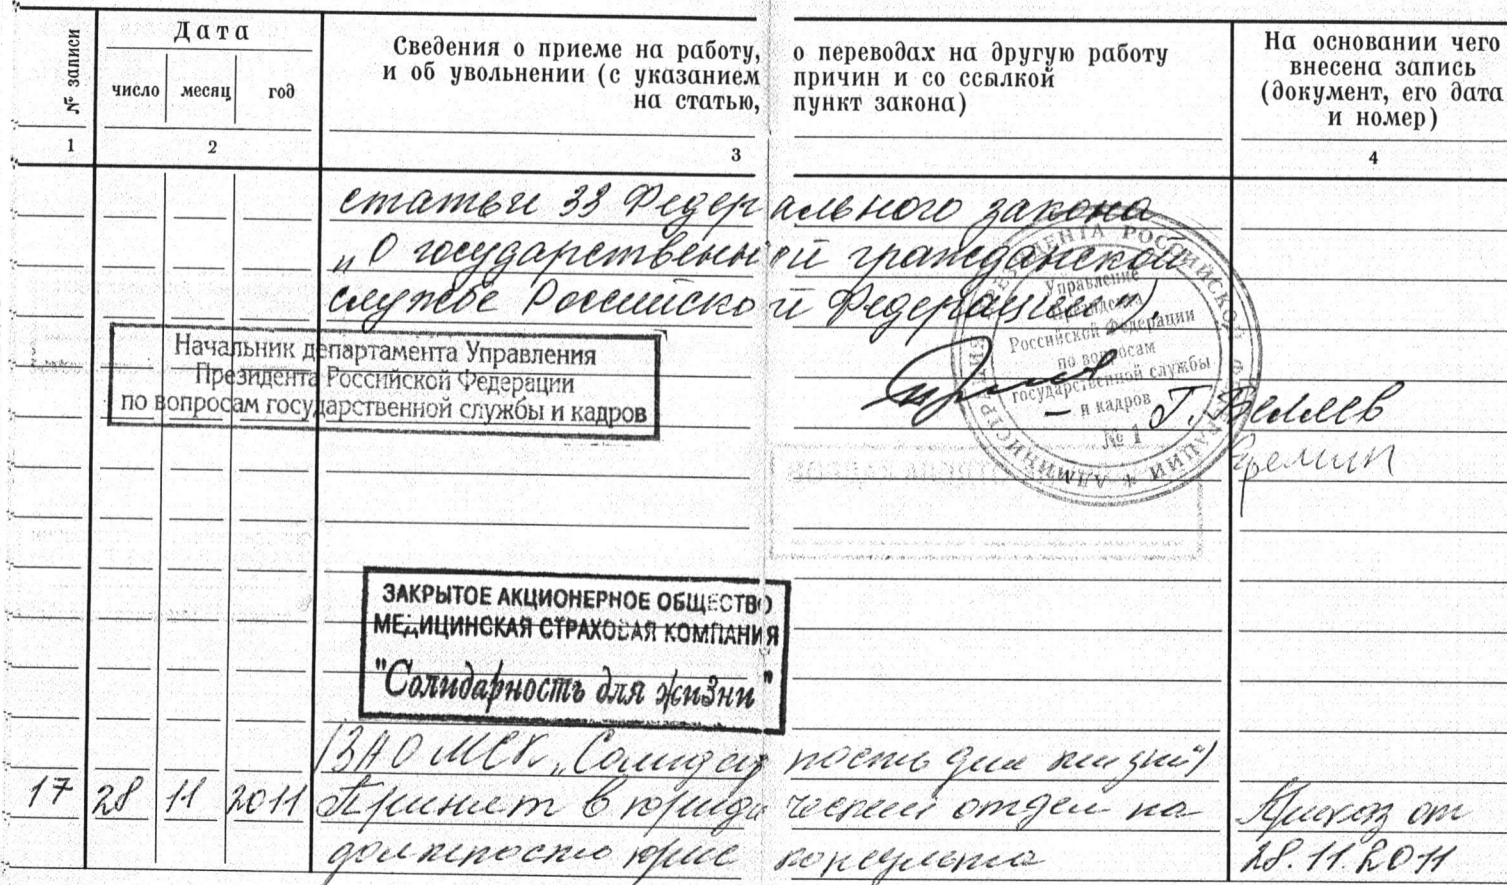 № записи
Дата
число месяц год
Сведения о приеме на работу, о переводах на другую работу
и об увольнении (с указанием причин и со ссылкой
на статью, пункт закона)
На основании чего
внесена запись
(документ, его дата
и номер)
1 2 3 4
статьи 33 Федерального закона
„О государственной гражданской
службе Российской Федерации").
Начальник департамента Управления
Президента Российской Федерации
по вопросам государственной службы и кадров
Управление
Президента
Российской Федерации
по вопросам
государственной службы
и кадров
№ 1
АДМИНИСТРАЦИЯ ПРЕЗИДЕНТА РОССИЙСКОЙ ФЕДЕРАЦИИ *
Г. Беляев
ЗАКРЫТОЕ АКЦИОНЕРНОЕ ОБЩЕСТВО
МЕДИЦИНСКАЯ СТРАХОВАЯ КОМПАНИЯ
"Солидарность для жизни"
(ЗАО МСК „Солидарность для жизни")
17 28 11 2011 Принят в юридический отдел на Приказ от
должность юрисконсульта 28.11.2011